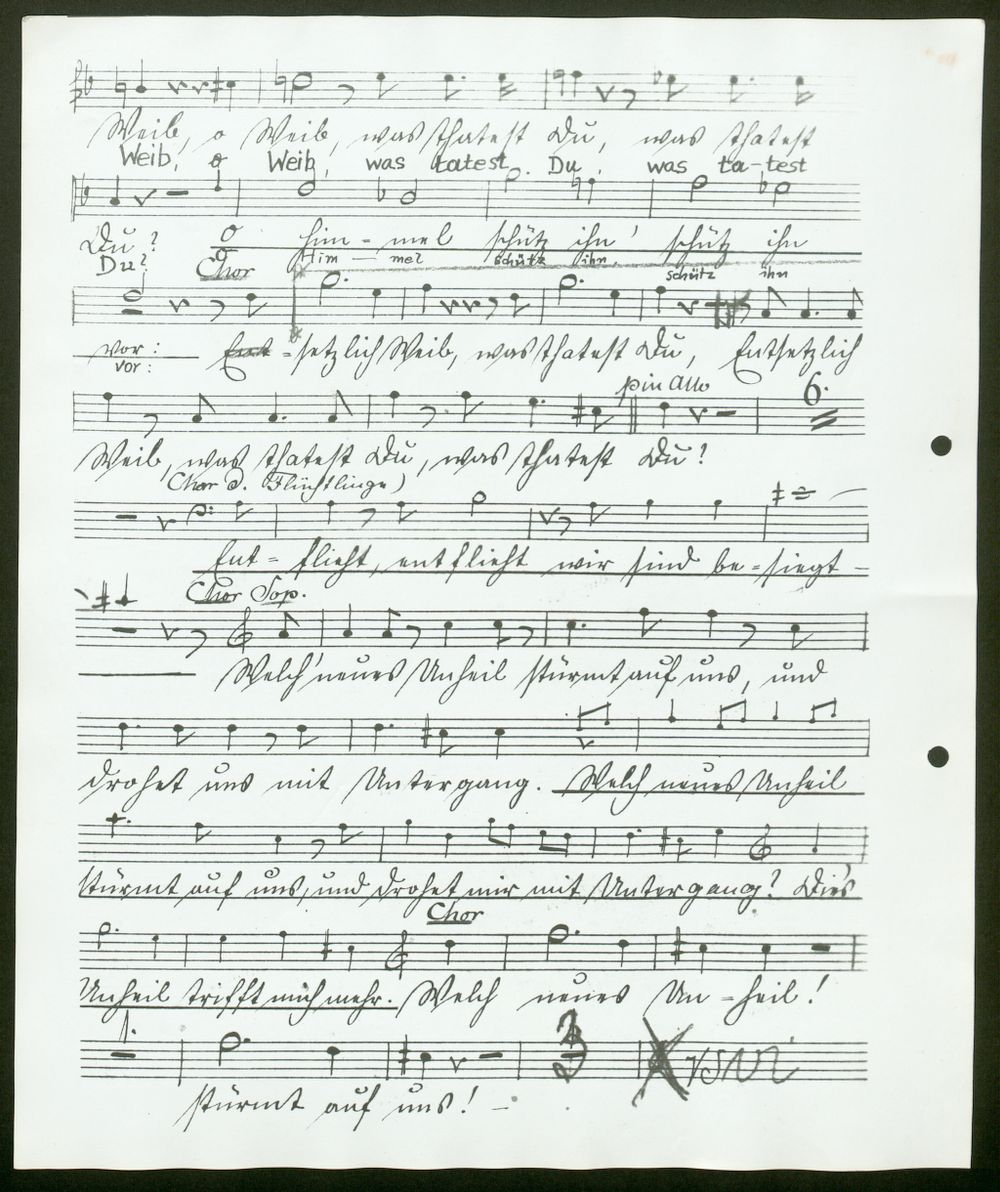 Weib, o Weib, was thatest Du, was thatest
Weib, o Weib, was tatest Du, was ta-test
Du? O Him-mel schütz ihn' schütz ihn
Du? O Him-mel schütz ihn, schütz ihn
Chor
vor: Ent-setzlich Weib, was thatest Du, Entsetzlich
vor:
piu Allo
6.
Weib, was thatest Du, was thatest Du?
Chor d. Flüchtlinge)
Ent-flieht, entflieht wir sind be-siegt-
Chor Sop.
Welch' neues Unheil stürmt auf uns, und
drohet uns mit Untergang. Welch neues Unheil
stürmt auf uns, und drohet mir mit Untergang? Dies
Chor
Unheil trifft mich mehr. Welch neues Un-heil!
3
stürmt auf uns! -